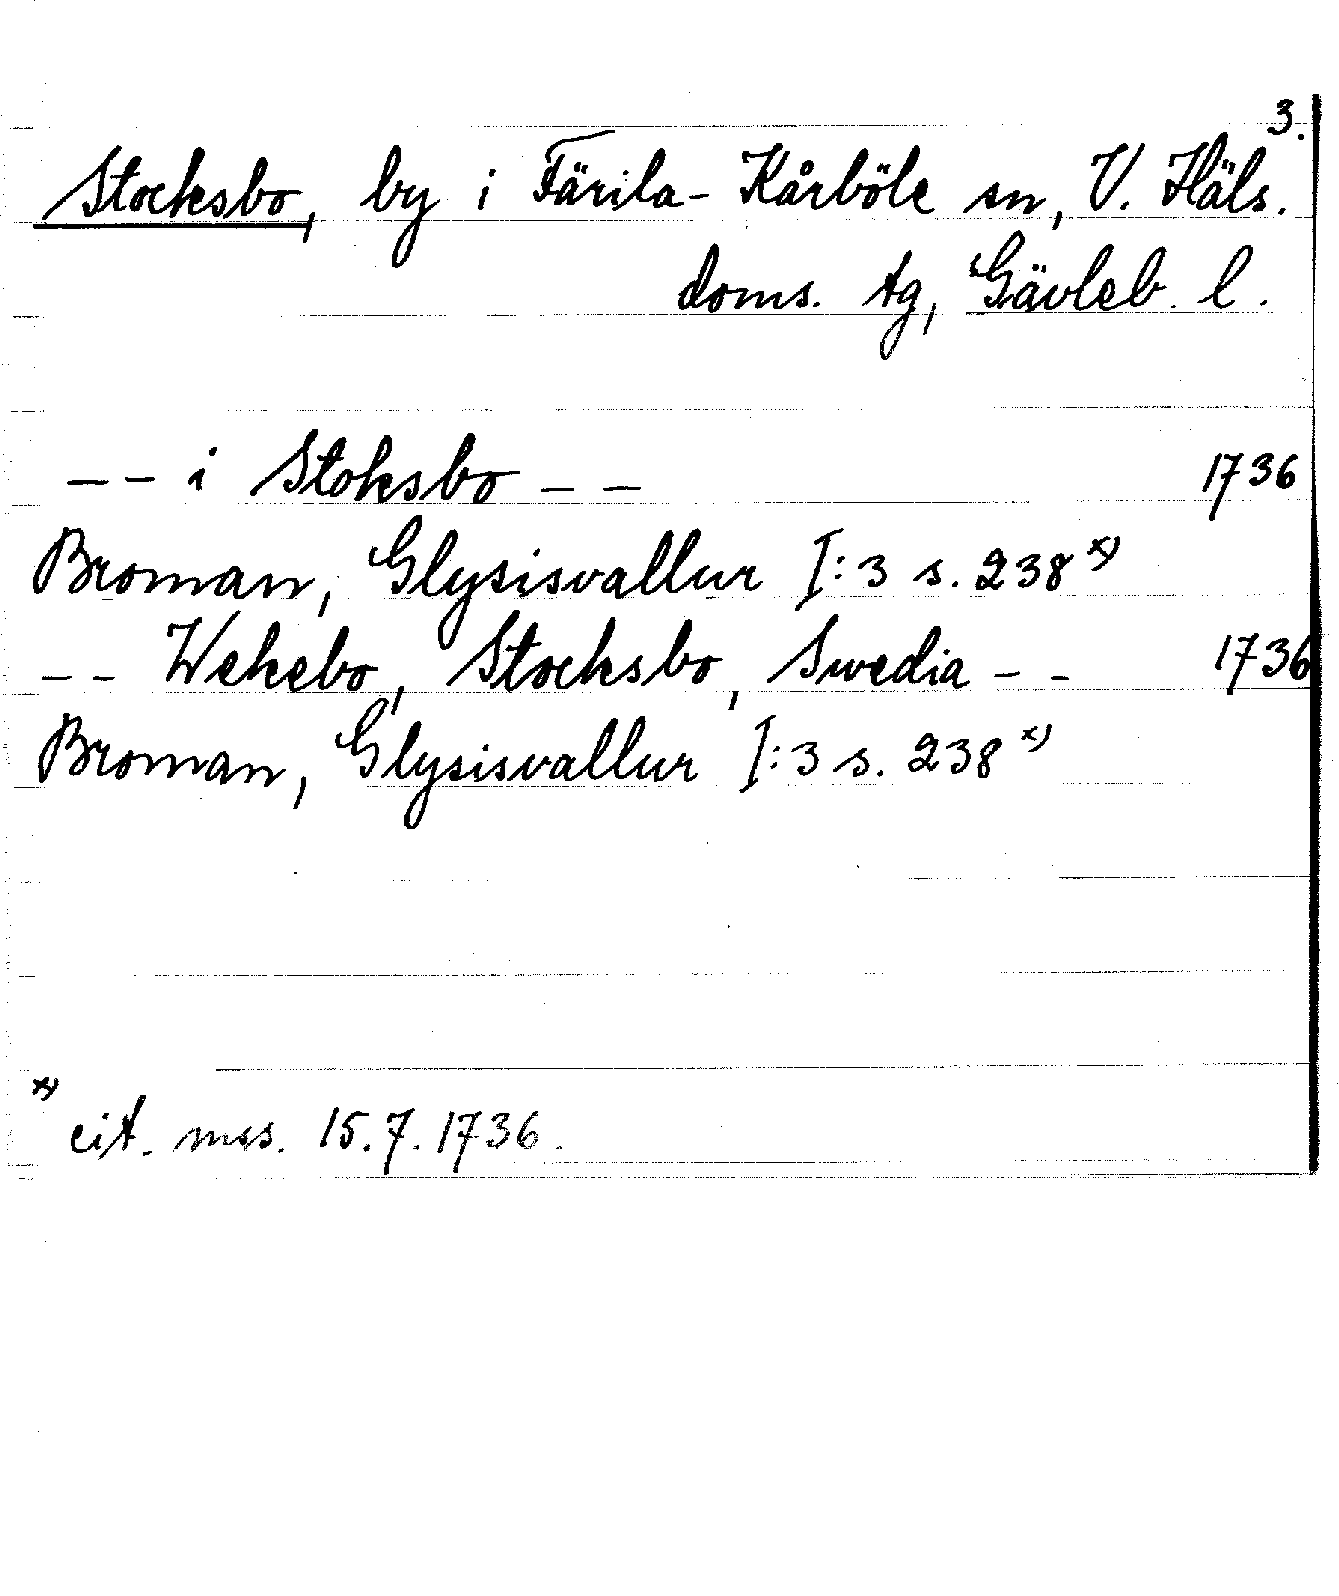 3.
Stocksbo, by i Färila-Kårböle sn, V. Häls.
doms. tg, Gävleb. l.
-- i Stoksbo -- 1736
Broman, Glysisvallur I:3 s. 238 x)
-- Wekebo, Stocksbo, Swedia -- 1736
Broman, Glysisvallur I:3 s. 238 x)
x) cit. mss. 15.7.1736.